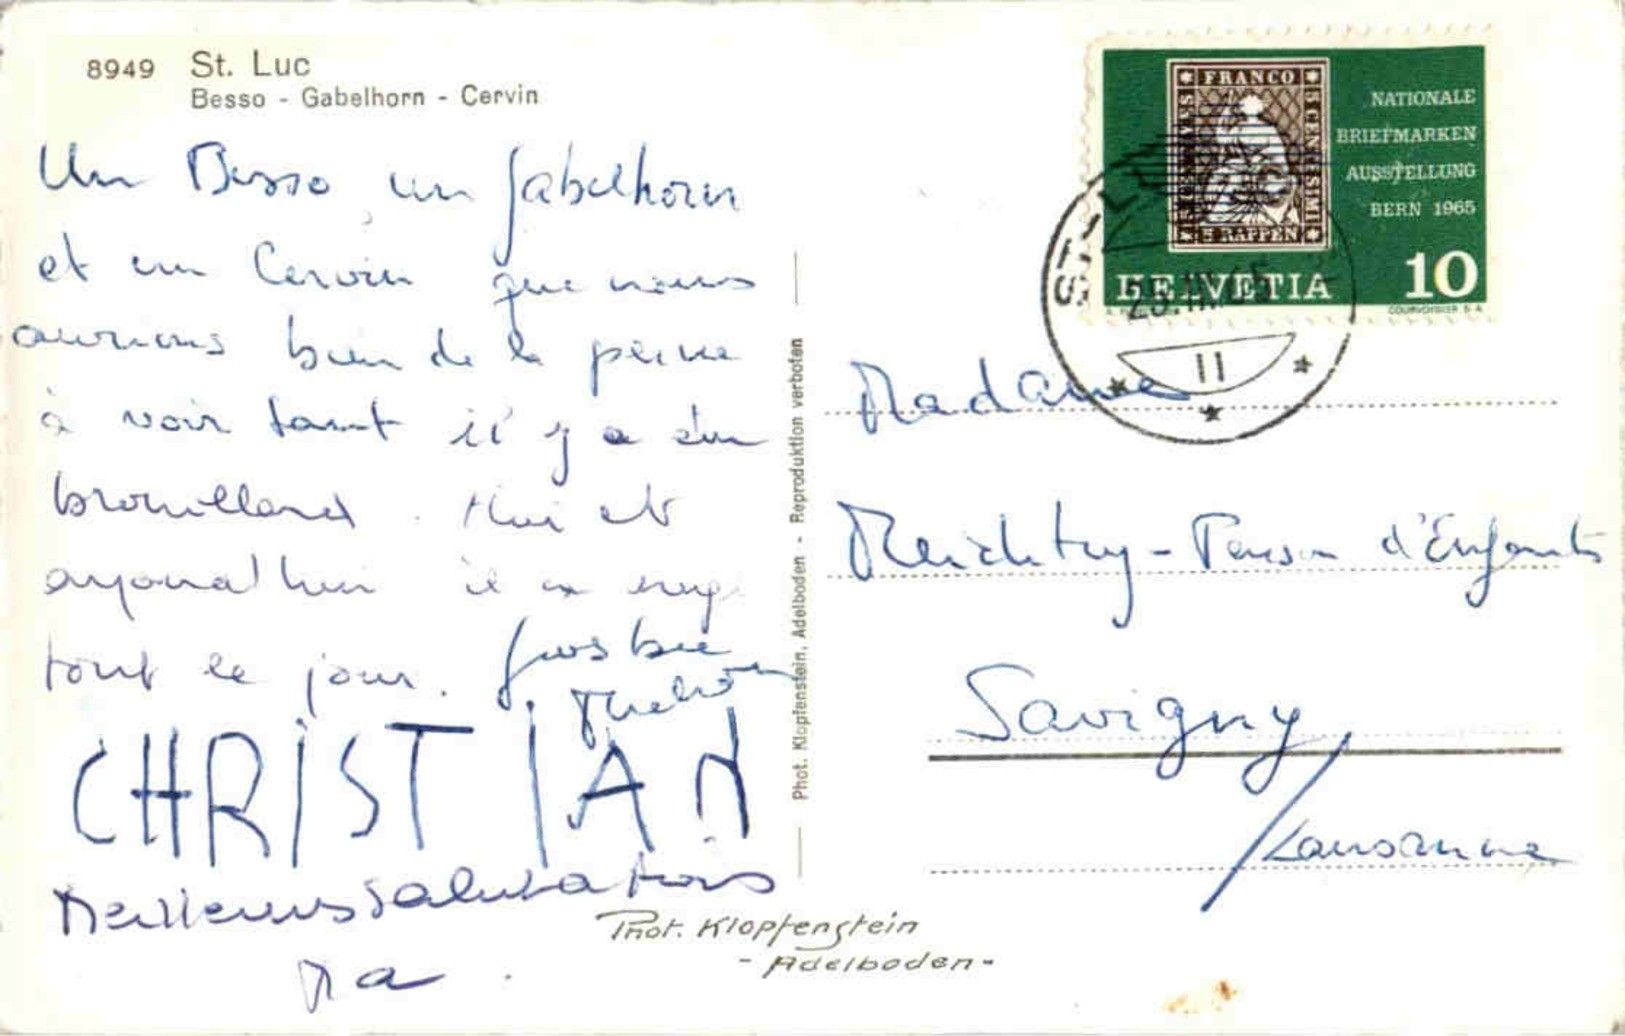 8949 St. Luc
Besso - Gabelhorn - Cervin
Un Besso, un Gabelhorn
et un Cervin que nous
aurions bien de la peine
à voir tant il y a
brouillard. Hier et
aujourd'hui il a neigé
tout le jour. Gros
CHRISTIAN
Meilleures salutations
Phot. Klopfenstein
- Adelboden -
Phot. Klopfenstein, Adelboden - Reproduktion verboten
FRANCO
5 CENTESIMI
5 RAPPEN
NATIONALE
BRIEFMARKEN
AUSSTELLUNG
BERN 1965
HELVETIA 10
COURVOISIER S.A.
ST-LUC
II
Madame
Meichtry - Pension d'Enfants
Savigny
/Lausanne